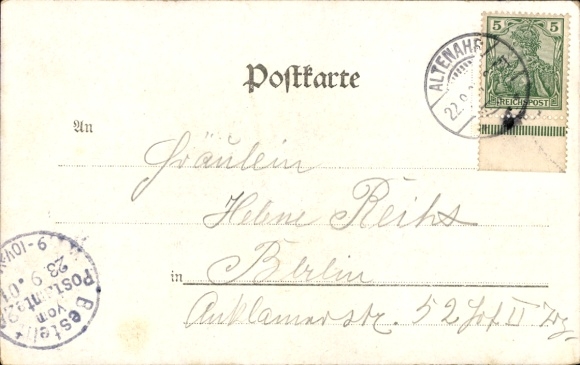 5 5
REICHSPOST
ALTENAHR
22.9.
Postkarte
An
Fräulein
Helene Reihs
in Berlin
Anklamerstr. 52 Hof II Trg.
Bestellt
vom
Postamt
23.9.01
9-10V.